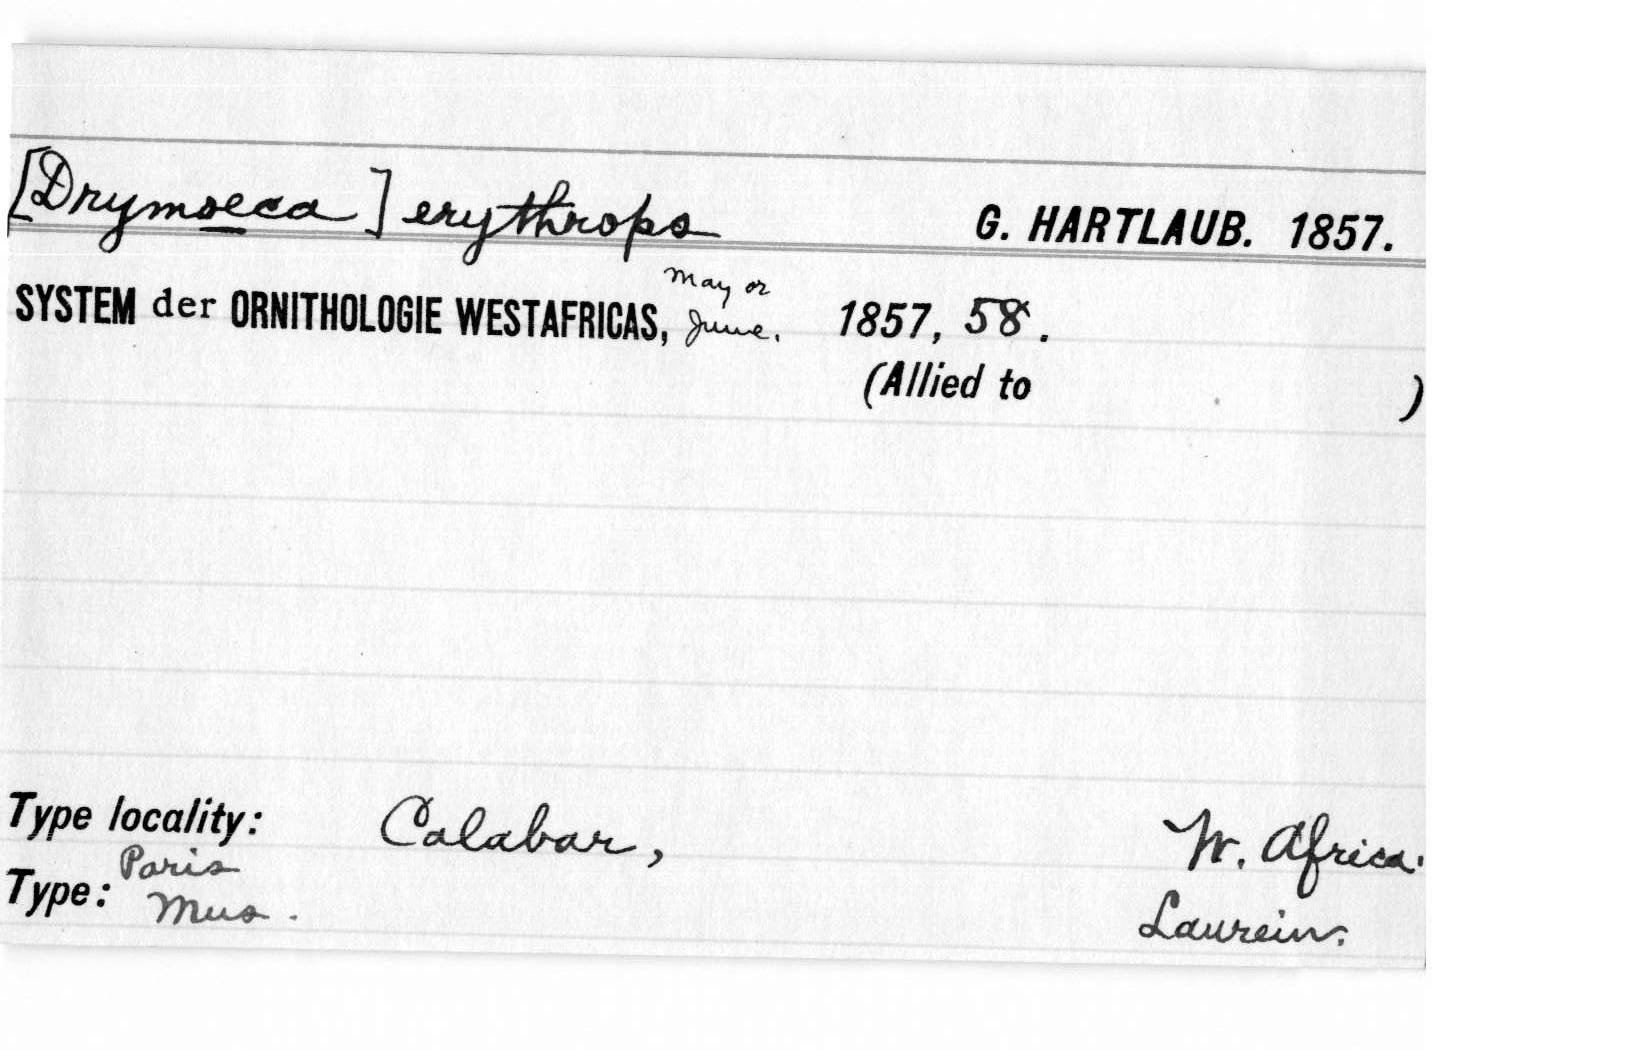 [Drymoeca] erythrops G. HARTLAUB. 1857.
May or
SYSTEM der ORNITHOLOGIE WESTAFRICAS, June. 1857, 58.
(Allied to )
Type locality: Calabar, W. Africa.
Paris
Type: Mus. Laurein.